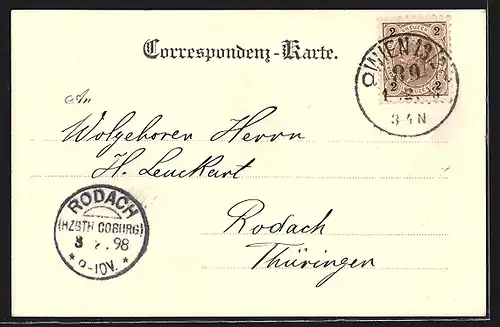 Correspondenz-Karte.
KREUZER
2 2
2 2
WIEN
89
3 4 N
An
Wolgeboren Herrn
H. Leuckart
Rodach
Thüringen
RODACH
(HZGTH COBURG)
98
9-10V.